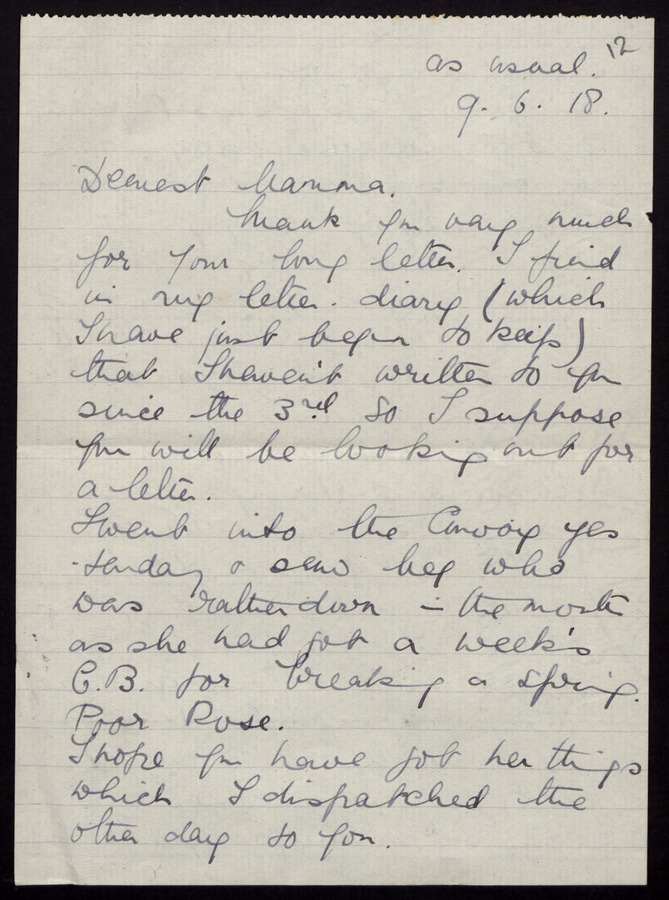 12
as usual.
9. 6. 18.
Dearest Mamma.
Thank you very much
for your long letter. I find
in my letter. diary (which
I have just begun to keep)
that I haven't written to you
since the 3rd. So I suppose
you will be looking out for
a letter.
I went into the Convoy yes
-terday & saw Meg who
was rather down in the mouth
as she had got a week's
C.B. for breaking a spring.
Poor Rose.
I hope you have got her things
which I dispatched the
other day to you.